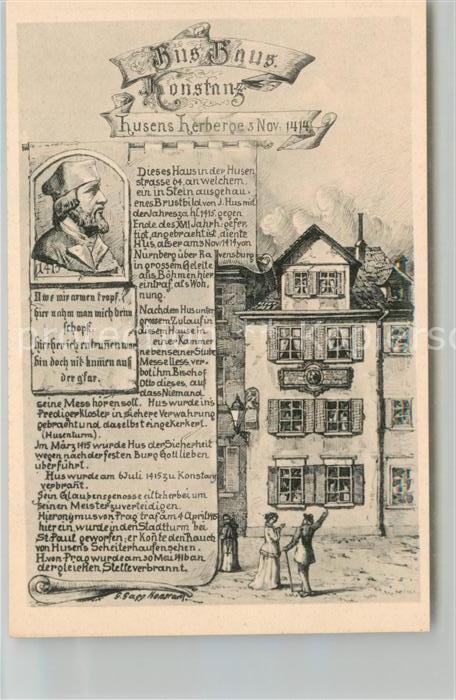 Hus Haus.
Konstanz
Husens Herberge 3 Nov. 1414
1415
O we mir armen tropf,
hier nahm man mich beim
schopf.
hierher ich entrunnen war
bin doch nit kummen aus
der gfar.
Dieses Haus in der Husen
strasse 64, an welchem
ein in Stein ausgehau-
enes Brustbild von J. Hus mit
der Jahreszahl 1415, gegen
Ende des XVII Jahrh. gefer
tigt, angebracht ist, diente
Hus, als er am 3 Nov. 1414 von
Nürnberg über Ravensburg
in grossem Geleite
aus Böhmen hier
eintraf, als Woh,
nung.
Nachdem Hus unter
grossem Zulauf in
dieser Hausen in
einer Kammer
neben seiner Stube
Messe lass, ver-
bot ihm Bischof
Otto dieses, auf
dass Niemand
seine Mess hören soll. Hus wurde ins
Predigerkloster in sichere Verwahrung
gebracht und daselbst eingekerkert.
(Husenturm).
Im März 1415 wurde Hus der Sicherheit
wegen nach der festen Burg Gottlieben
überführt.
Hus wurde am 6 Juli 1415 zu Konstanz
verbrant.
Sein Glaubensgenosse eilte herbei um
seinen Meister zu verteidigen.
Hieronymus von Prag traf am 4 April 1415
hier ein, wurde in den Stadtturm bei
St. Paul geworfen; er konte den Rauch
von Husens Scheiterhaufen sehen.
H. von Prag wurde am 30 Mai 1416 an
der gleichen Stelle verbrannt.